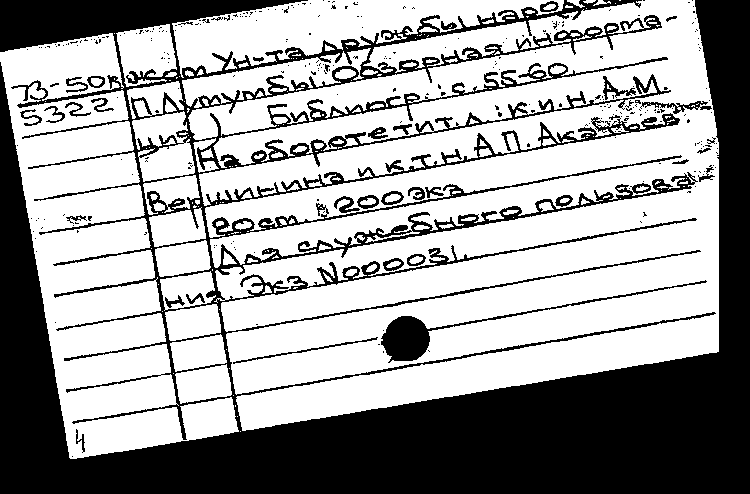 73-50к жом Ун-та дружбы народов
5322 П. Лумумбы. Обзорная информа-
ция) Библиогр.: с. 55-60.
На обороте тит. л: к.и.н. А.М.
Вершинина и к.т.н. А.П. Аканьев
20 ст. 200 экз
Для служебного пользова
ния. Экз. N000031.
4